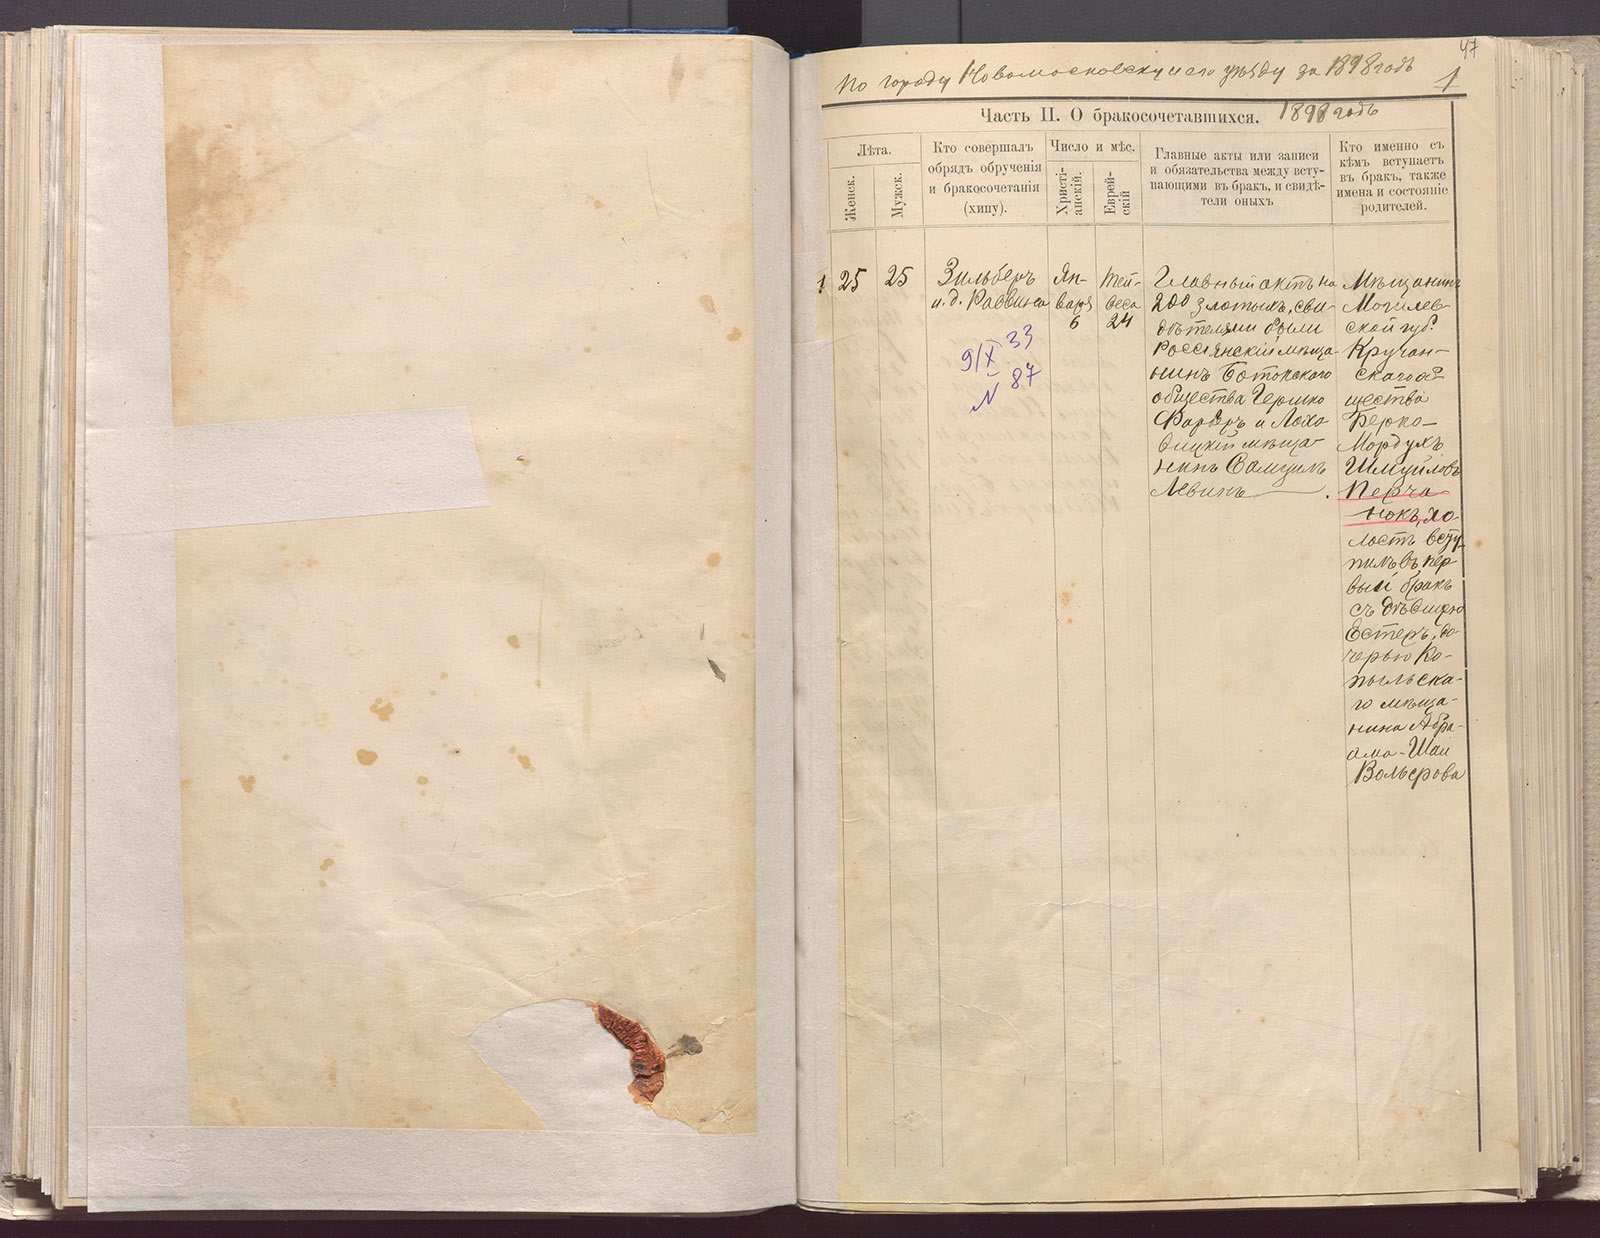 47
По городу Новомосковску и его уѣзду за 1898 годъ
1
Часть II. О бракосочетавшихся. 1898 годъ
Лѣта.
Женск.
Мужск.
Кто совершалъ
обрядъ обрученія
и бракосочетанія
(хипу).
Число и мѣс.
Христі-
анскій.
Еврей-
скій
Главные акты или записи
и обязательства между всту-
пающими въ бракъ, и свидѣ-
тели оныхъ
Кто именно съ
кѣмъ вступаетъ
въ бракъ, также
имена и состояніе
родителей.
1
25
25
Зильберъ
и.д. Раввина
9/X 33
N 87
Ян-
варя
6
Тей-
веса
24
Главный актъ на
200 злотыхъ, сви-
дѣтелями были
Россіянскій мѣща-
нинъ
общества Гершко
Фарберъ и Ляхо-
вицкій мѣща-
нинъ Самуилъ
Левинъ
Мѣщанинъ
Могилев-
ской губ.
Кручан-
скаго об-
щества
Берко-
Мордухъ
Шмуйловъ
Перча-
нокъ, хо-
лостъ всту-
пилъ въ пер-
вый бракъ
съ дѣвицею
Естеръ, до-
черью Ко-
пыльска-
го мѣща-
нина Абра-
ама-Шаи
Вольфова